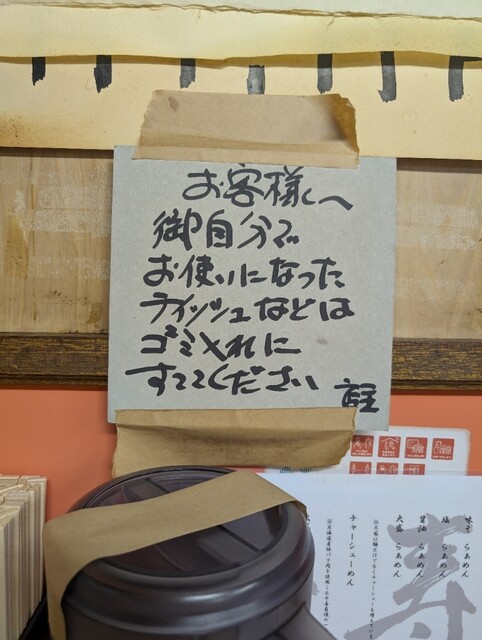 お客様へ
御自分で
お使いになった
ティッシュなどは
ゴミ入れに
すててください
店主
味そ らぁめん
塩 らぁめん
醤油 らぁめん
大盛 らぁめん
チャーシューめん
寿